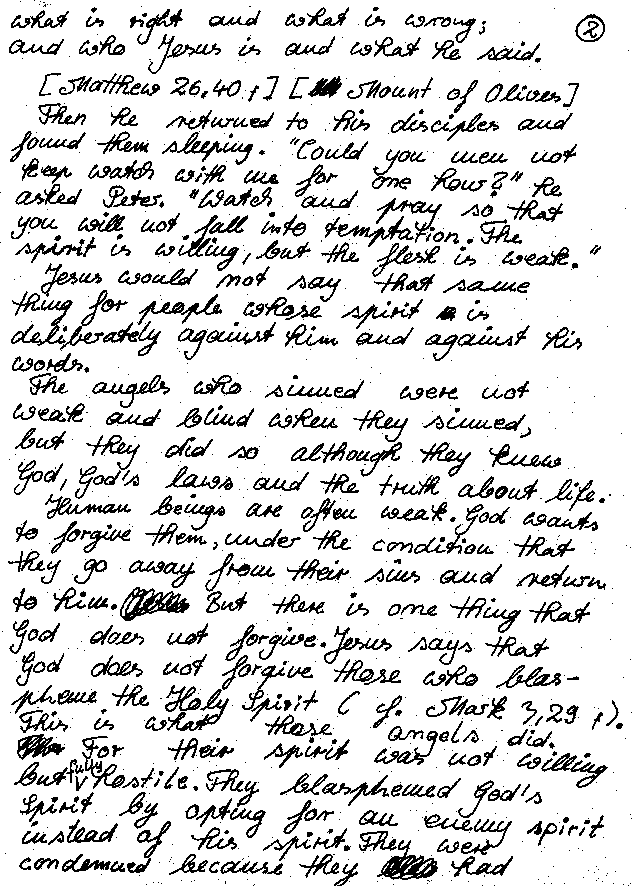 what is right and what is wrong; ②
and who Jesus is and what he said.
[Matthew 26,40 f] [Mount of Olives]
Then he returned to his disciples and
found them sleeping. "Could you men not
keep watch with me for one hour?" he
asked Peter. "Watch and pray so that
you will not fall into temptation. The
spirit is willing, but the flesh is weak."
Jesus would not say that same
thing for people whose spirit is
deliberately against him and against his
words.
The angels who sinned were not
weak and blind when they sinned,
but they did so although they knew
God, God's laws and the truth about life.
Human beings are often weak. God wants
to forgive them, under the condition that
they go away from their sins and return
to him. But there is one thing that
God does not forgive. Jesus says that
God does not forgive those who blas-
pheme the Holy Spirit (cf. Mark 3,29 f).
This is what those angels did.
For their spirit was not willing
but fully hostile. They blasphemed God's
Spirit by opting for an enemy spirit
instead of his spirit. They were
condemned because they had